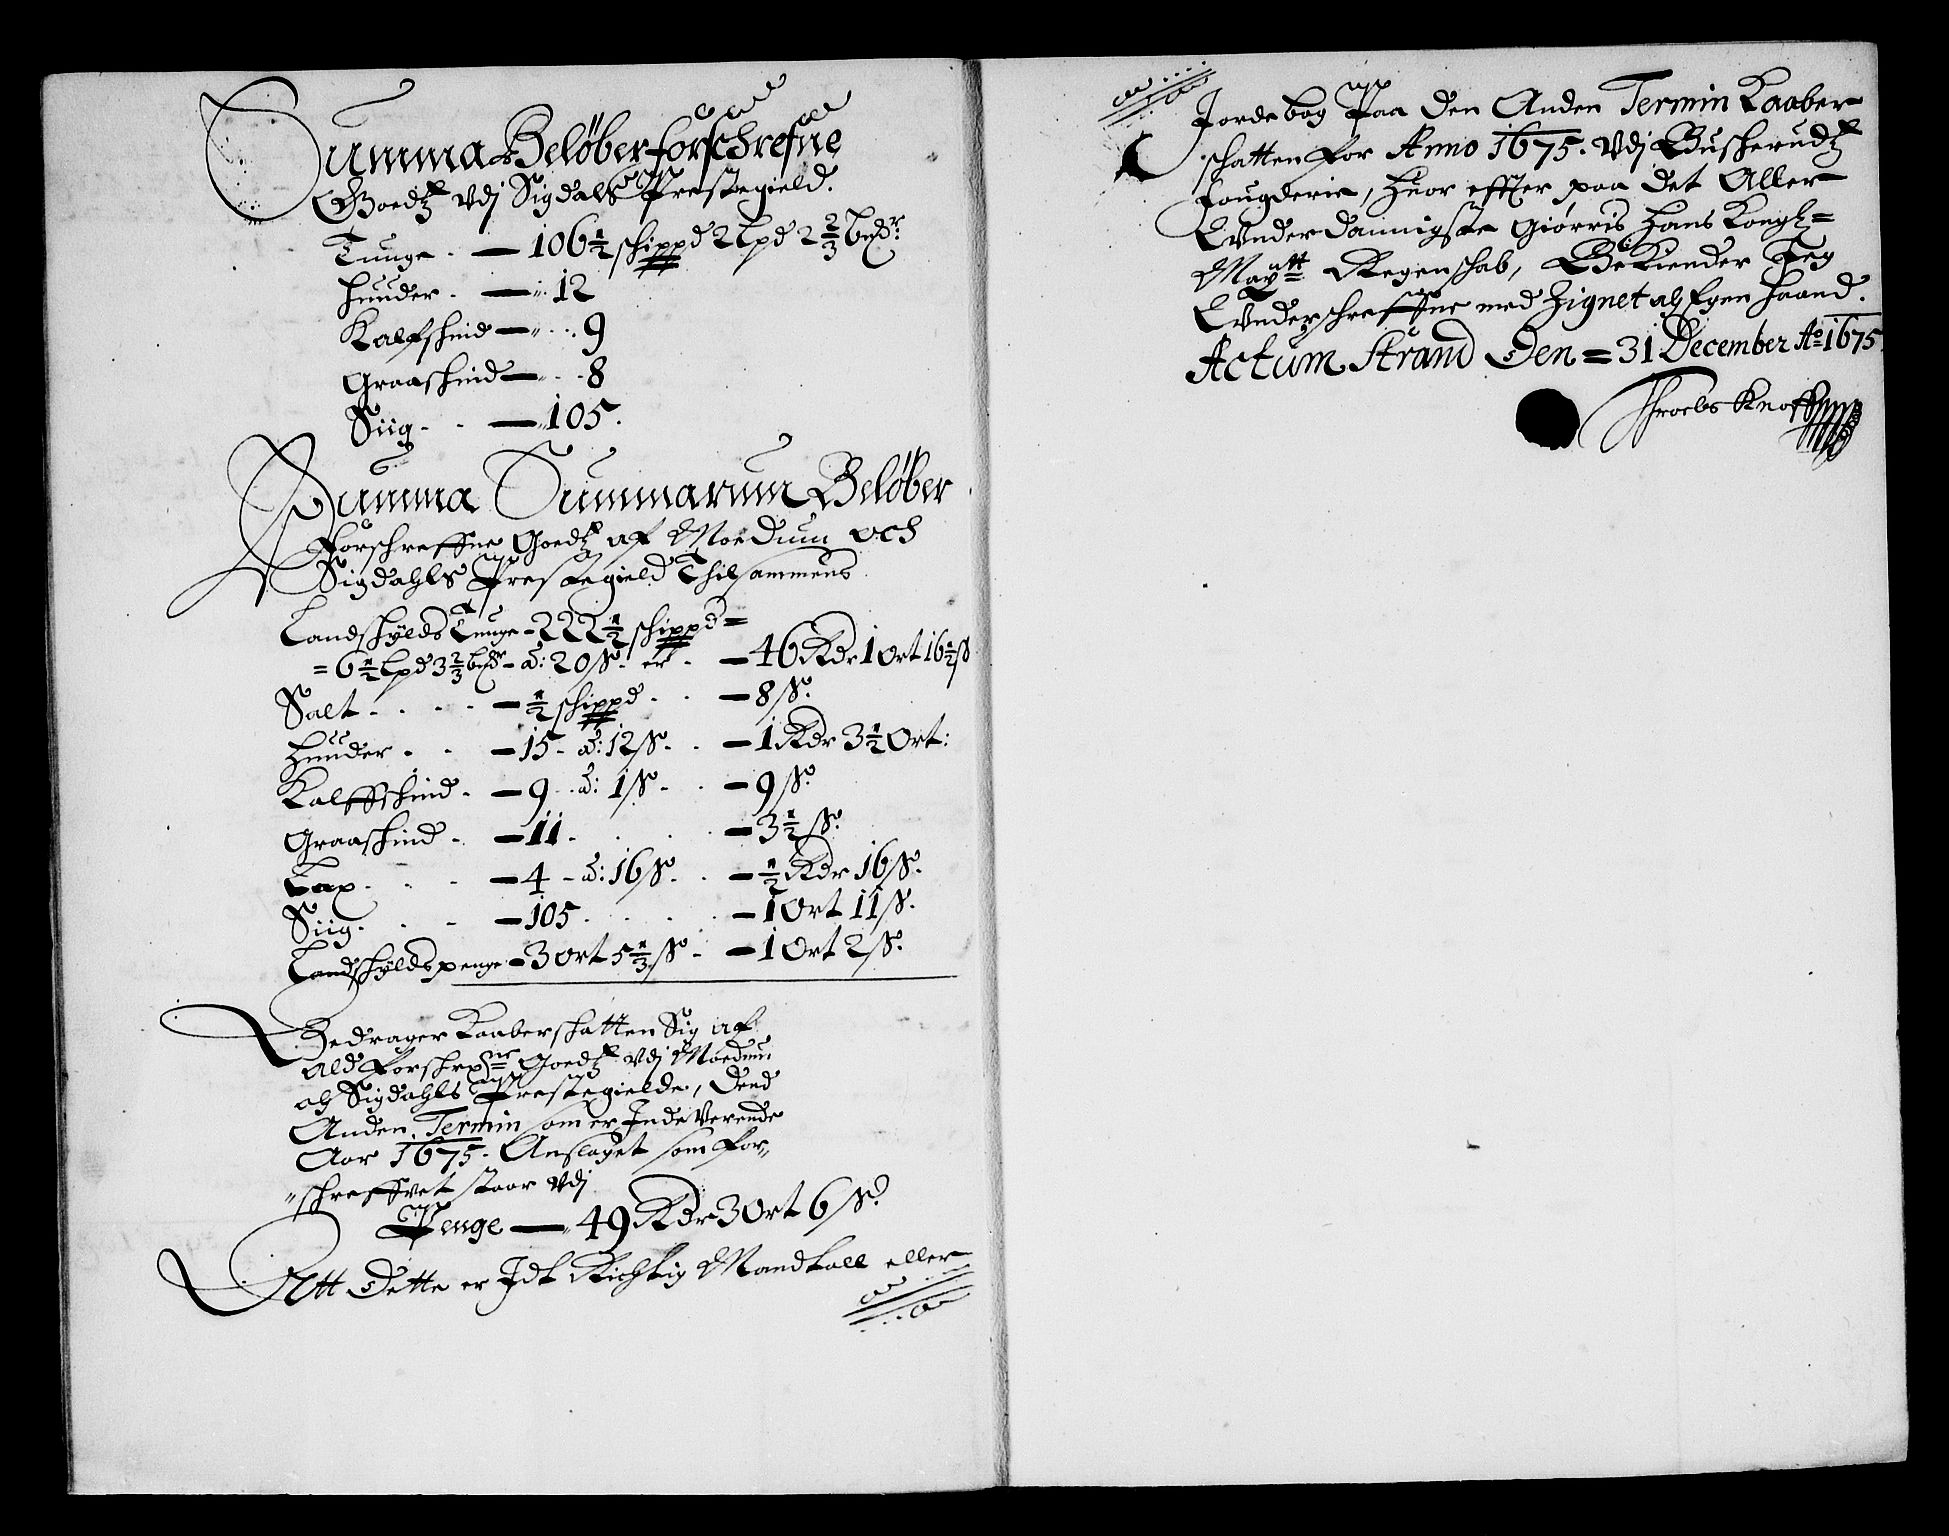 Summa Beløber forschrefne
Goedz Vdj Sigdals Prestegield.
Tunge - 106½ schippd 2 Lpd 2⅔ bpd.
Huuder - 12
Kalfskind - 9
Graaskind - 8
Siig - - 105.
Summa Summarum Beløber
Forschreffne Goedz af Moedum och
Sigdahls Prestegield Thilsammens
Landschylds Tunge - 222½ schippd =
= 6½ Lpd 3⅔ bpd - á: 20 ß - er - 46 Rdr 1 ort 16½ ß
Salt - - - - ½ schippd - - 8 ß.
Huuder - - 15 - á: 12 ß - - 1 Rdr 3½ Ort:
Kalffskind - 9 - á: 1 ß - - 9 ß.
Graaskind - 11 - - - 3½ ß.
Lax - - - 4 - á: 16 ß - - ½ Rdr 16 ß.
Siig - - - 105 - - - 1 Ort 11 ß.
Landschyldspenge - 3 ort 5⅓ ß - - 1 Ort 2 ß.
Bedrager Kaaberschatten Sig af
ald Forschrne Goedz Vdj Moedum
och Sigdahls Prestegielde, Dend
Anden Termin som er Inde Verende
Aar 1675. Anslaget som for„
„schreffvet staar Vdj
Penge - 49 Rdr 3 Ort 6 ß.
Att Dette er Idt Richtig Mandtall eller
Jordebog Paa den Anden Termin Kaaber
schatten for Anno 1675. Vdj Buskerudz
fougderie, Huor effter paa det Aller
Vnderdannigste Giørris Hans Kongl=
Maytt Regenschab, Bekiender Jeg
Vnderschreffne med Zignet och Egen Haand.
Actum Strand Den = 31 December Ao 1675.
Knoff